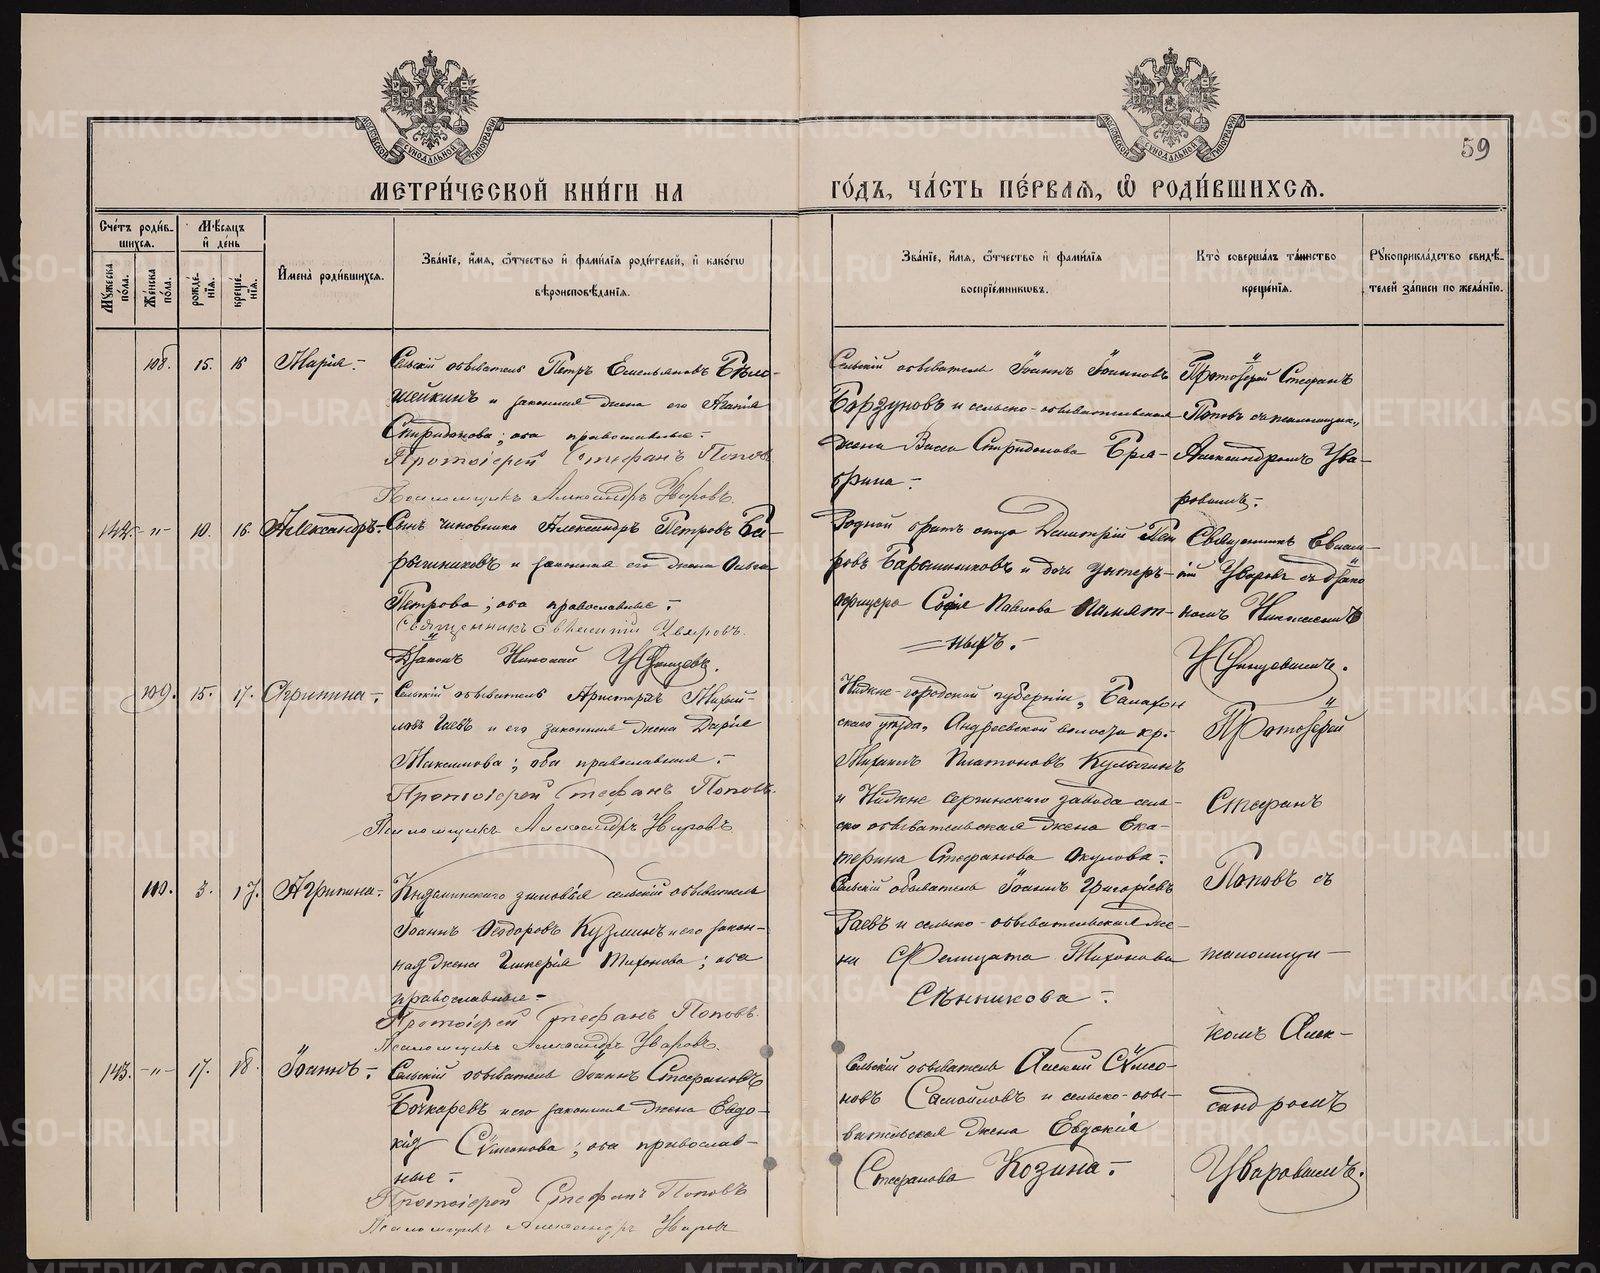 МОСКОВСКОЙ СѴНОДАЛЬНОЙ ТИПОГРАФІИ
МОСКОВСКОЙ СѴНОДАЛЬНОЙ ТИПОГРАФІИ
59
МЕТРИ́ЧЕСКОЙ КНИ́ГИ НА
ГО́ДЪ, ЧА́СТЬ ПЕ́РВАѦ, Ѽ РОДИ́ВШИХСѦ.
Сче́тъ роди́в-
шихсѧ.
Мѣ́сѧцъ
и҆ де́нь
Мꙋ́жеска по́ла.
Же́нска по́ла.
рожде́-
нїѧ.
креще́-
нїѧ.
И҆мена̀ роди́вшихсѧ.
Зва́нїе, и҆́мѧ, ѻ҆́тчество и҆ фамі́лїѧ роди́телей, и҆ како́гѡ
вѣроисповѣ́данїѧ.
Зва́нїе, и҆́мѧ, ѻ҆́тчество и҆ фамі́лїѧ
воспрїе́мникѡвъ.
Кто̀ соверша́лъ та́инство
креще́нїѧ.
Рꙋкоприкла́дство свидѣ́-
телей за́писи по жела́нїю.
108. 15. 16 Марія.-
Сельскій обыватель Петръ Емельяновъ
и законная жена его Агапія
Спиридонова; оба православные.-
Протоіерей Стефанъ Поповъ
Псаломщикъ Александръ Уваровъ.
Сельскій обыватель Іоаннъ Іоанновъ
и сельско-обывательская
жена Васса Спиридонова
Протоіерей Стефанъ
Поповъ съ псаломщик.
Александромъ Ува-
ровымъ.-
142. -"- 10. 16. Александръ.-
Сынъ чиновника Александръ Петровъ Ба-
рышниковъ и законная его жена Ольга
Петрова; оба православные.-
Священникъ Евѳимій Уваровъ.
Діаконъ Николай
Родной братъ отца Димитрій Пет
ровъ Барышниковъ и дочь унтеръ-
офицера Софія Павлова Памят-
ныхъ.-
Священникъ Евѳим-
ій Уваровъ съ діако
номъ Николаемъ
109. 15. 17. Агрипина.-
Сельскій обыватель Аристархъ Михай-
ловъ Гаевъ и его законная жена Дарія
Максимова; оба православные.-
Протоіерей Стефанъ Поповъ.
Псаломщикъ Александръ Уваровъ
Нижне-городской губерніи, Балахон
скаго уѣзда, Андреевской волости кр.
Михаилъ Платоновъ Кулыгинъ
и Нижне Сергинскаго завода сель-
ско обывательская жена Ека-
терина Стефанова Окулова.-
Протоіерей
Стефанъ
Поповъ съ
псаломщи-
комъ Алек-
сандромъ
Уваровымъ.
110. 3. 17. Агрипина.-
зимовья сельскій обыватель
Іоаннъ Ѳеодоровъ Кузминъ и его закон-
ная жена Гликерія Тихонова; оба
православные-
Протоіерей Стефанъ Поповъ.
Псаломщикъ Александръ Уваровъ.
Сельскій обыватель Іоаннъ Григоріевъ
Гаевъ и сельско-обывательская же-
на Фелицата Тихонова
Сѣнникова.-
143. -"- 17. 18. Іоаннъ.-
Сельскій обыватель Іоаннъ Стефановъ
Бочкаревъ и его законная жена Евдо-
кія Сѵмеонова; оба православ-
ные.-
Протоіерей Стефанъ Поповъ
Псаломщикъ Александръ Уваровъ
Сельскій обыватель Алексій Сѵмео-
новъ Самойловъ и сельско-обы-
вательская жена Евдокія
Стефанова Козина.-